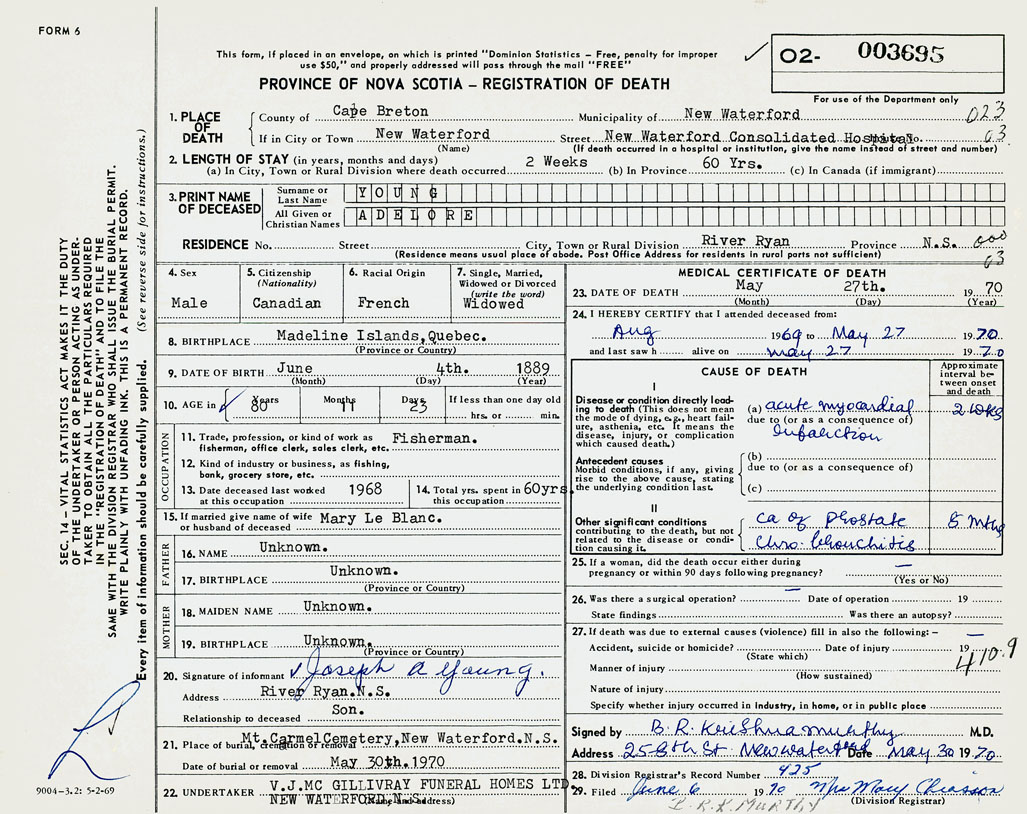 FORM 6
This form, if placed in an envelope, on which is printed "Dominion Statistics – Free, penalty for improper
use $50," and properly addressed will pass through the mail "FREE"
PROVINCE OF NOVA SCOTIA – REGISTRATION OF DEATH
O2- 003695
For use of the Department only
1. PLACE OF DEATH
County of Cape Breton Municipality of New Waterford 023
If in City or Town New Waterford Street New Waterford Consolidated Hospital 03
(Name) (If death occurred in a hospital or institution, give the name instead of street and number)
2. LENGTH OF STAY (in years, months and days)
(a) In City, Town or Rural Division where death occurred 2 Weeks (b) In Province 60 Yrs. (c) In Canada (if immigrant)
3. PRINT NAME OF DECEASED
Surname or Last Name YOUNG
All Given or Christian Names ADELORE
RESIDENCE No. Street City, Town or Rural Division River Ryan Province N.S. 000
(Residence means usual place of abode. Post Office Address for residents in rural parts not sufficient) 03
4. Sex
Male
5. Citizenship
(Nationality)
Canadian
6. Racial Origin
French
7. Single, Married,
Widowed or Divorced
(write the word)
Widowed
8. BIRTHPLACE Madeline Islands,Quebec.
(Province or Country)
9. DATE OF BIRTH June 4th. 1889
(Month) (Day) (Year)
10. AGE in Years Months Days If less than one day old
80 11 23 hrs. or min.
OCCUPATION
11. Trade, profession, or kind of work as Fisherman.
fisherman, office clerk, sales clerk, etc.
12. Kind of industry or business, as fishing,
bank, grocery store, etc.
13. Date deceased last worked at this occupation 1968
14. Total yrs. spent in this occupation 60yrs.
15. If married give name of wife or husband of deceased Mary Le Blanc.
FATHER
16. NAME Unknown.
17. BIRTHPLACE Unknown.
(Province or Country)
MOTHER
18. MAIDEN NAME Unknown.
19. BIRTHPLACE Unknown.
(Province or Country)
20. Signature of informant Joseph A Young.
Address River Ryan.N.S.
Relationship to deceased Son.
21. Place of burial, cremation or removal Mt.CarmelCemetery,New Waterford.N.S.
Date of burial or removal May 30th.1970
22. UNDERTAKER V.J.MC GILLIVRAY FUNERAL HOMES LTD.
NEW WATERFORD.N.S.
(Name and address)
MEDICAL CERTIFICATE OF DEATH
23. DATE OF DEATH May 27th. 19 70
(Month) (Day) (Year)
24. I HEREBY CERTIFY that I attended deceased from:
Aug 1969 to May 27 1970
and last saw h alive on may 27 1970
CAUSE OF DEATH
Approximate interval between onset and death
I
Disease or condition directly leading to death (This does not mean the mode of dying, e.g., heart failure, asthenia, etc. It means the disease, injury, or complication which caused death.)
(a) acute myocardial 2 wks
due to (or as a consequence of)
Infarction
Antecedent causes
Morbid conditions, if any, giving rise to the above cause, stating the underlying condition last.
(b)
due to (or as a consequence of)
(c)
II
Other significant conditions
contributing to the death, but not related to the disease or condition causing it.
Ca of Prostate 8 mths
Chro. bronchitis
25. If a woman, did the death occur either during
pregnancy or within 90 days following pregnancy? —
(Yes or No)
26. Was there a surgical operation? — Date of operation 19
State findings Was there an autopsy?
27. If death was due to external causes (violence) fill in also the following: – —
Accident, suicide or homicide? Date of injury 19
(State which) 410.9
Manner of injury
(How sustained)
Nature of injury
Specify whether injury occurred in industry, in home, or in public place
Signed by B.R. Krishnamurthy M.D.
Address 258th St Newwaterford Date May 30 1970
28. Division Registrar's Record Number 425
29. Filed June 6 1970 Mrs Mary Chiasson
(Division Registrar)
B.R.K MURTHY
SEC. 14 – VITAL STATISTICS ACT MAKES IT THE DUTY
OF THE UNDERTAKER OR PERSON ACTING AS UNDERTAKER
TO OBTAIN ALL THE PARTICULARS REQUIRED
IN THE "REGISTRATION OF DEATH" AND TO FILE THE
SAME WITH THE DIVISION REGISTRAR WHO SHALL ISSUE THE BURIAL PERMIT.
WRITE PLAINLY WITH UNFADING INK. THIS IS A PERMANENT RECORD.
Every item of information should be carefully supplied. (See reverse side for instructions.)
9004-3.2: 5-2-69